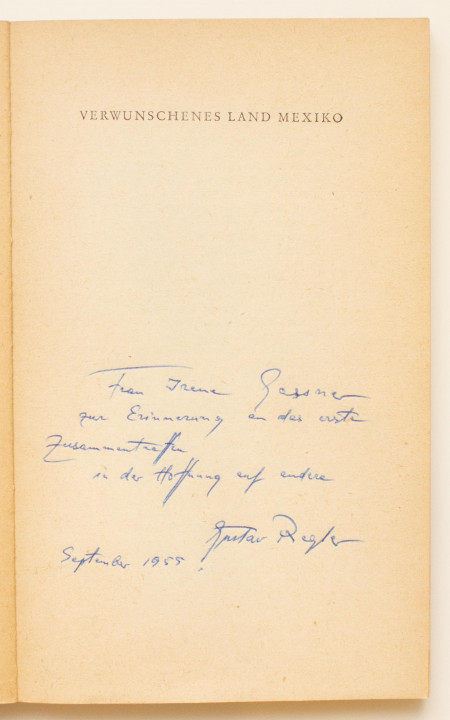 VERWUNSCHENES LAND MEXIKO
Frau Irene Gassner
zur Erinnerung an das erste
Zusammentreffen
in der Hoffnung auf andere
Gustav Regler
September 1955